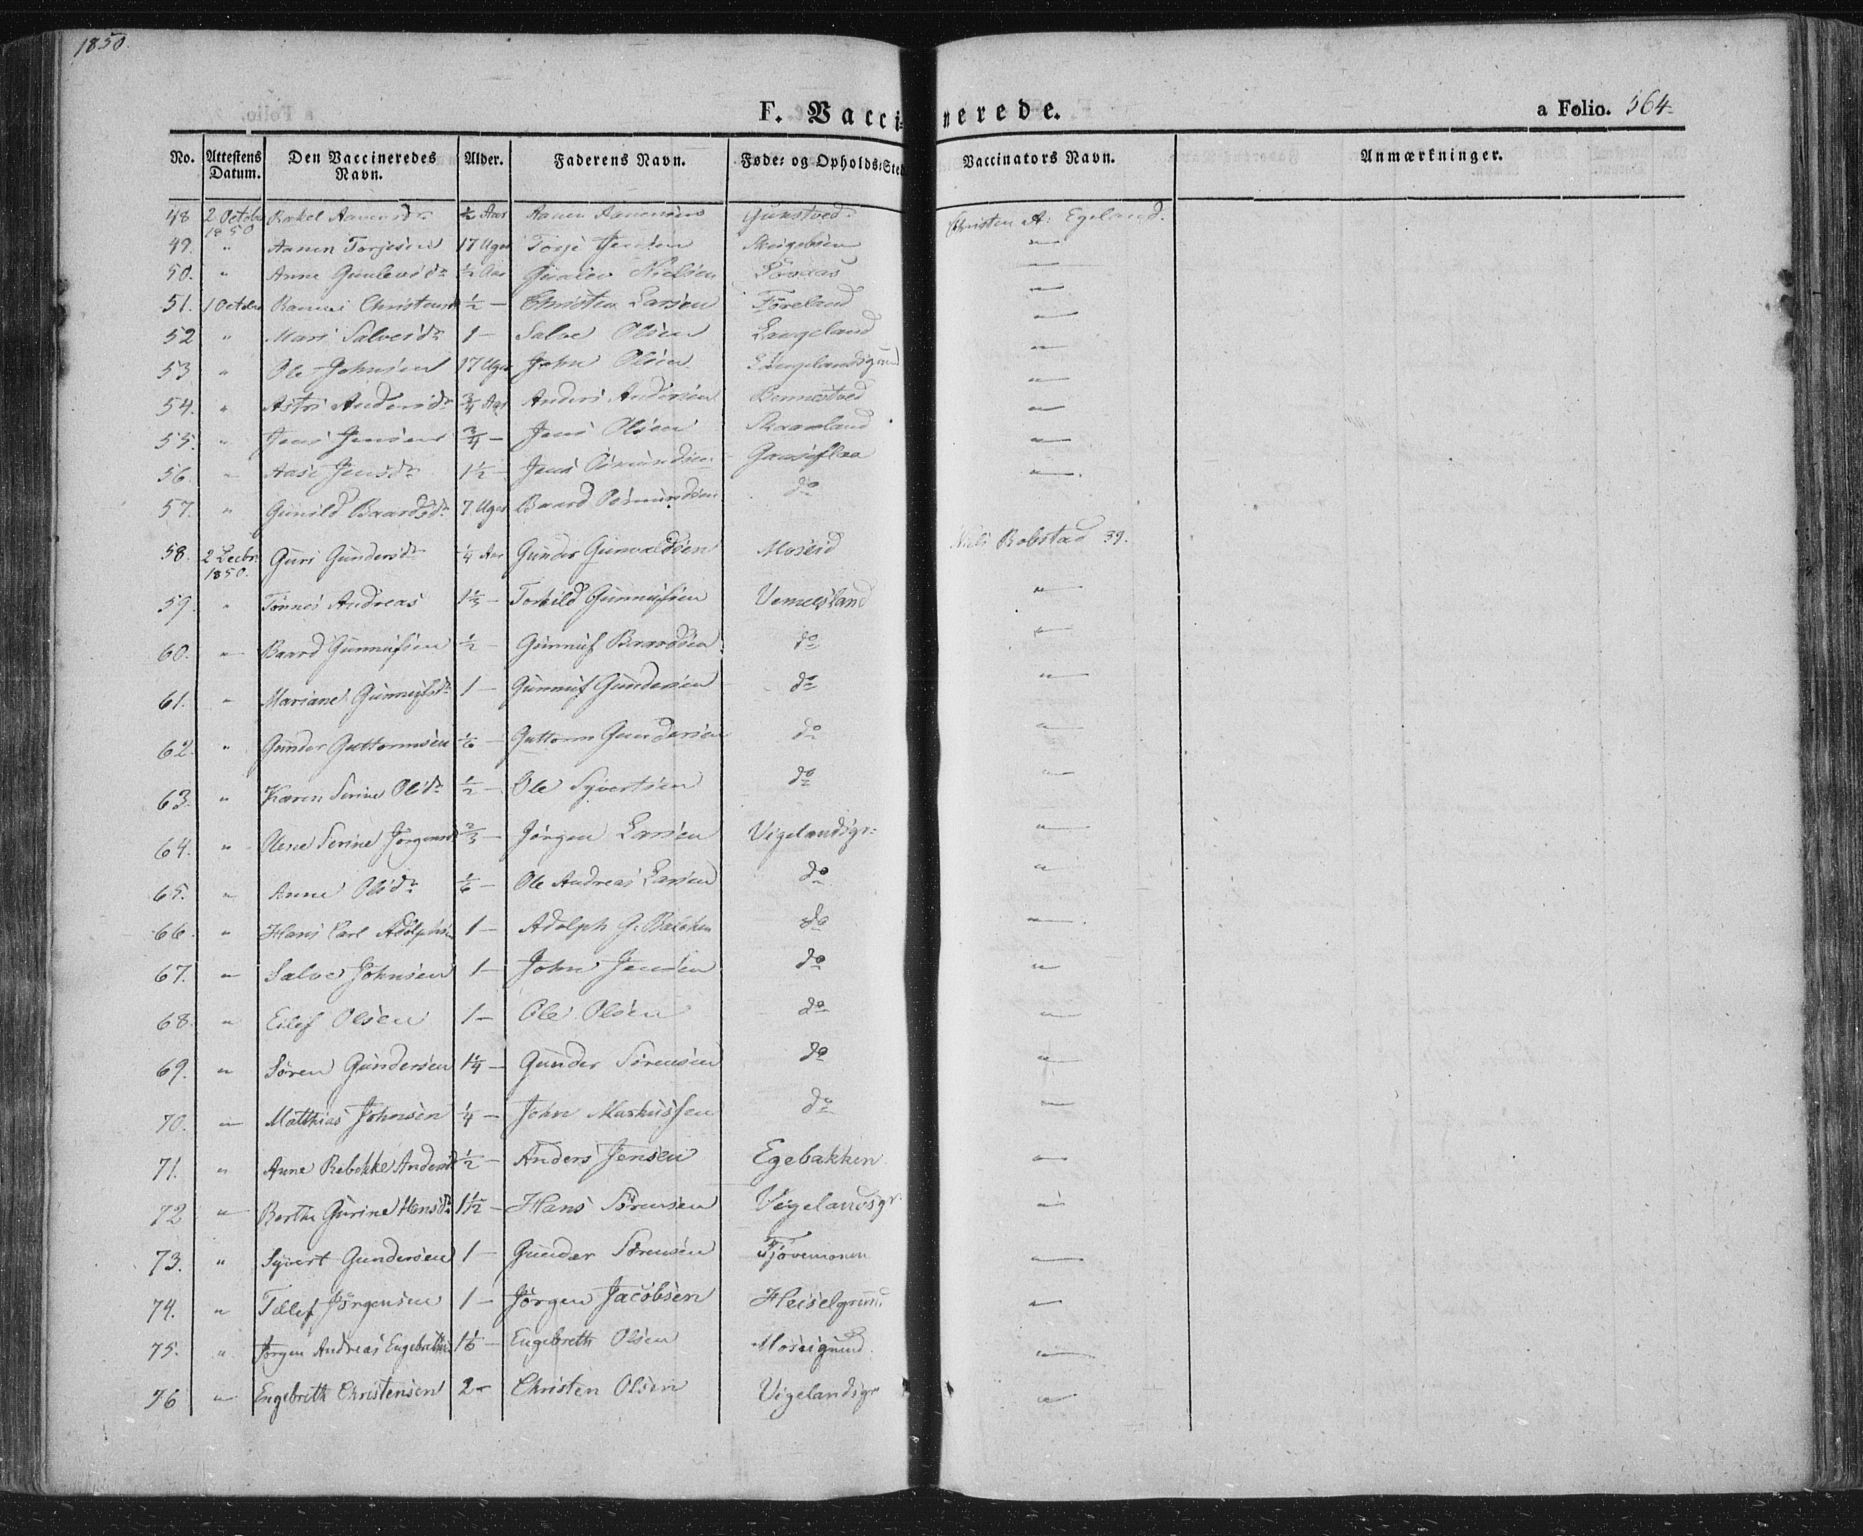 1850.
F. Vaccinerede.
a Folio. 564.
No. Attestens Datum. Den Vaccineredes Navn. Alder. Faderens Navn. Føde- og Opholds-Sted Vaccinators Navn. Anmærkninger.
48 2 Octobr 1850 Rakel Aanensdr ½ Aar Aanen Aanensens Gunstved Christen A: Egeland.
49. " Aanen Torjesen 17 Uger Torje Jensen "
50. " Anne Gunlevsdr ½ Aar Gunlev Nielsen "
51. 1 Octobr Christensd ½ — Christen Larsen Føreland "
52 " Mari Salvesdr 1 — Salve Olsen Langeland "
53 " Ole Johnsen 17 Uger John Olsen Langelandsgrund "
54. " Astri Andersdr ¾ Aar Anders Andersen Bennestved "
55. " Jens Jensen ¾ — Jens Olsen "
56 " Aase Jensdr 1½ — Jens Osmundsen Gaaseflaa "
57. " Gunild Baardsdr 7 Uger Baard Osmundsen do
58. 2 Decbr 1850. Guri Gundersdr ¼ Aar Gunder Gunvaldsen Moseid Niels Robstad 39.
59. " Tønnes Andreas 1⅓ — Torkild Gunnufsen Vemesland "
60. " Baard Gunnufsen ½ — Gunnuf Baardsen do "
61. " Mariane Gunnufsdr 1 — Gunnuf Gundersen do "
62. " Gunder Guttormsen ⅙ — Guttorm Gundersen do "
63. " Karen Serine Olsdr ½ — Ole Syvertsen do "
64. " Serine Jørgensd ⅔ — Jørgen Larsen Vigelandsgr: "
65. " Anne Olsdr ⅙ — Ole Andreas Larsen do "
66. " Hans Carl Adolphsen 1 — Adolph G. Balchen do "
67. " Salve Johnsen 1 — John Jensen do "
68. " Eilef Olsen 1 — Ole Olsen do "
69. " Søren Gundersen 1¼ — Gunder Sørensen do "
70. " Matthias Johnsen ¼ — John Markussen do "
71. " Anne Rebekke Andersd ½ — Anders Jensen Egebakken "
72 " Berthe Gurine Hansdr 1½ — Hans Sørensen Vigelandsgr. "
73. " Syvert Gundersen 1 — Gunder Sørensen Tjøvemoen "
74. " Tellef Jørgensen 1 — Jørgen Jacobsen Heiselgrund "
75. " Jørgen Andreas Engebrethsen 1⅙ — Engebreth Olsen Moseigrund. "
76 " Engebreth Christensen 2 — Christen Olsen Vigelandsgr "